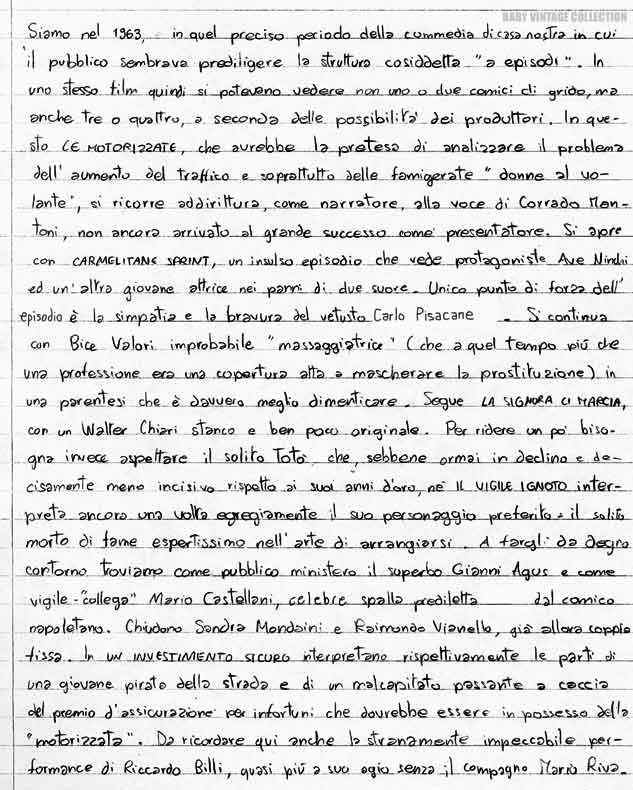 BABY VINTAGE COLLECTION
Siamo nel 1963, in quel preciso periodo della commedia di casa nostra in cui
il pubblico sembrava prediligere la struttura cosiddetta "a episodi". In
uno stesso film quindi si potevano vedere non uno o due comici di grido, ma
anche tre o quattro, a seconda delle possibilità dei produttori. In que-
sto LE MOTORIZZATE, che avrebbe la pretesa di analizzare il problema
dell'aumento del traffico e soprattutto delle famigerate "donne al vo-
lante", si ricorre addirittura, come narratore, alla voce di Corrado Man-
toni, non ancora arrivato al grande successo come presentatore. Si apre
con CARMELITANE SPRINT, un insulso episodio che vede protagoniste Ave Ninchi
ed un'altra giovane attrice nei panni di due suore. Unico punto di forza dell'
episodio è la simpatia e la bravura del vetusto Carlo Pisacane. Si continua
con Bice Valori improbabile "massaggiatrice" (che a quel tempo più che
una professione era una copertura atta a mascherare la prostituzione) in
una parentesi che è davvero meglio dimenticare. Segue LA SIGNORA CI MARCIA,
con un Walter Chiari stanco e ben poco originale. Per ridere un po' biso-
gna invece aspettare il solito Totò che, sebbene ormai in declino e de-
cisamente meno incisivo rispetto ai suoi anni d'oro, ne IL VIGILE IGNOTO inter-
preta ancora una volta egregiamente il suo personaggio preferito: il solito
morto di fame espertissimo nell'arte di arrangiarsi. A fargli da degno
contorno troviamo come pubblico ministero il superbo Gianni Agus e come
vigile-"collega" Mario Castellani, celebre spalla prediletta dal comico
napoletano. Chiudono Sandra Mondaini e Raimondo Vianello, già allora coppia
fissa. In UN INVESTIMENTO SICURO interpretano rispettivamente le parti di
una giovane pirata della strada e di un malcapitato passante a caccia
del premio d'assicurazione per infortuni che dovrebbe essere in possesso della
"motorizzata". Da ricordare qui anche la stranamente impeccabile per-
formance di Riccardo Billi, quasi più a suo agio senza il compagno Mario Riva.